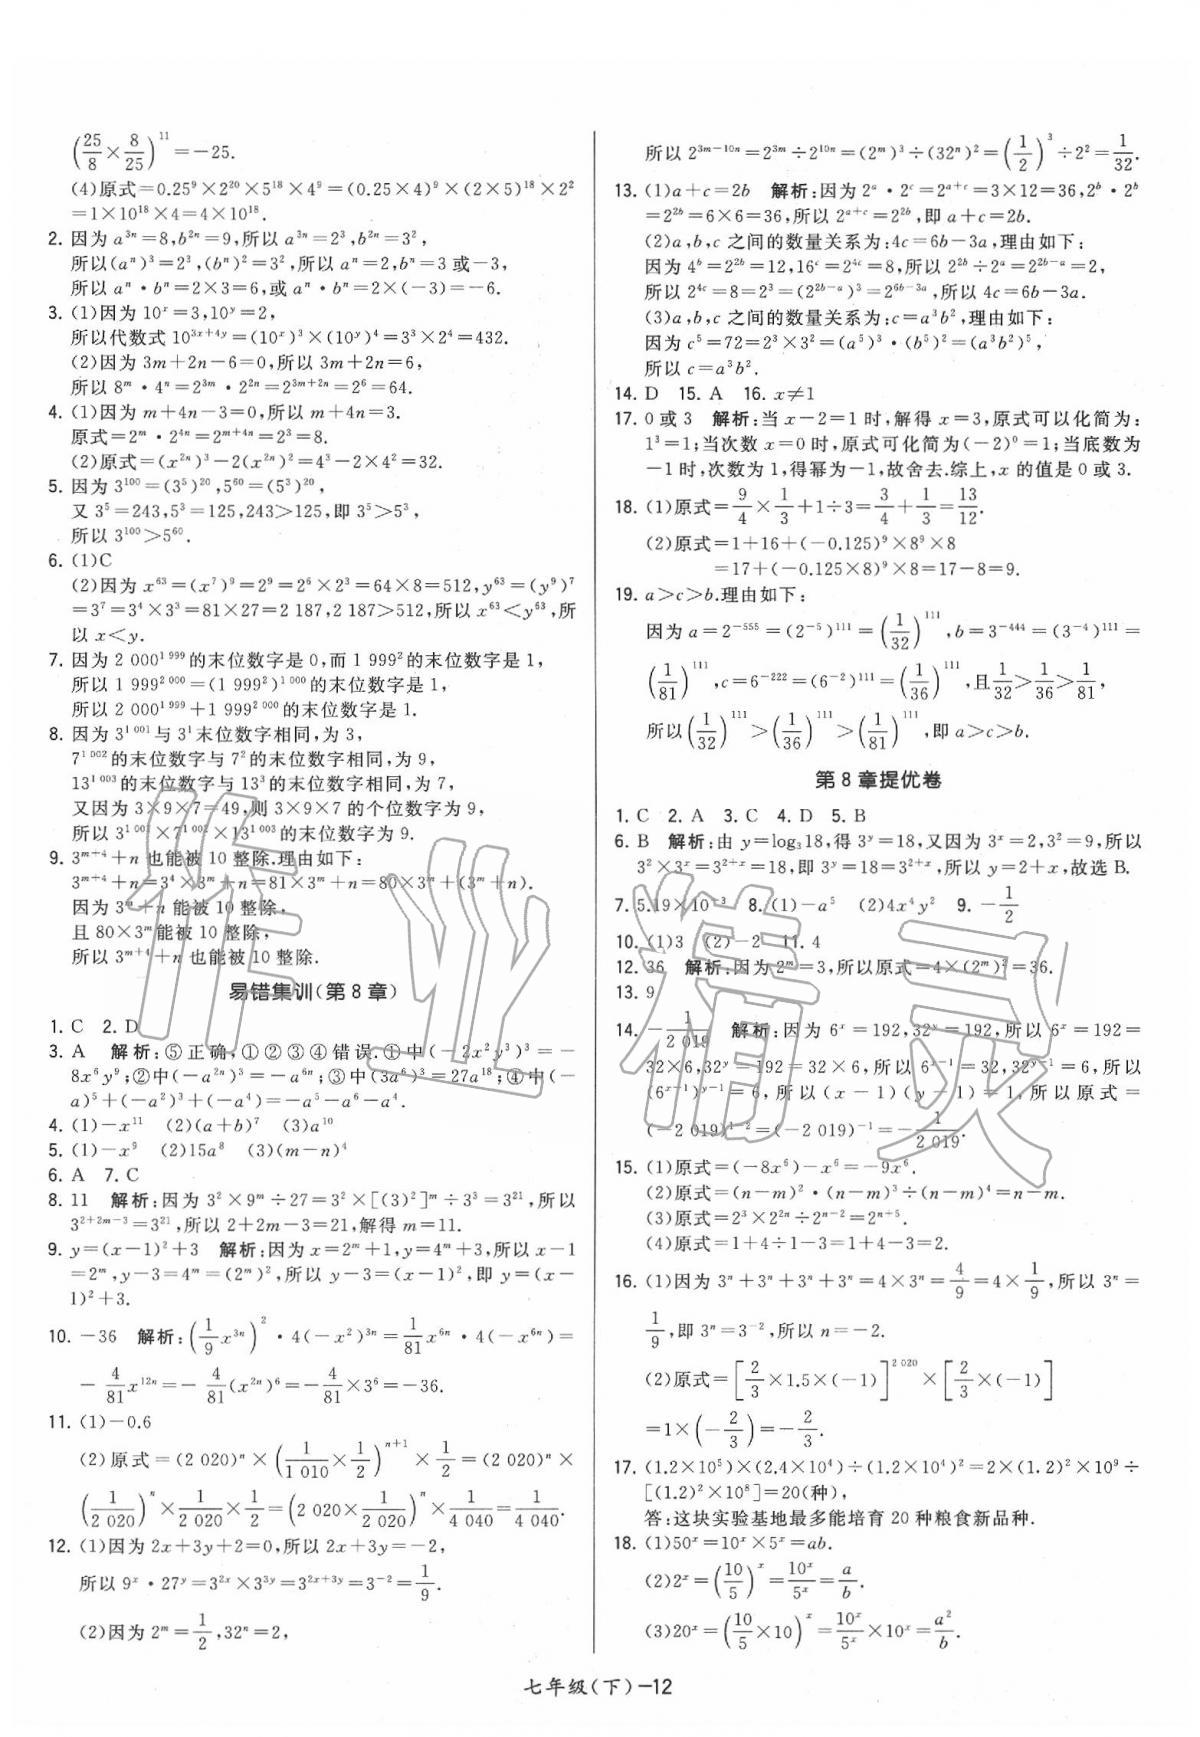 (25/8×8/25)^11=-25.
(4)原式=0.25^9×2^20×5^18×4^9=(0.25×4)^9×(2×5)^18×2^2
=1×10^18×4=4×10^18.
2. 因为a^3n=8,b^2n=9,所以a^3n=2^3,b^2n=3^2,
所以(a^n)^3=2^3,(b^n)^2=3^2,所以a^n=2,b^n=3或-3,
所以a^n·b^n=2×3=6,或a^n·b^n=2×(-3)=-6.
3. (1)因为10^x=3,10^y=2,
所以代数式10^(3x+4y)=(10^x)^3×(10^y)^4=3^3×2^4=432.
(2)因为3m+2n-6=0,所以3m+2n=6,
所以8^m·4^n=2^3m·2^2n=2^(3m+2n)=2^6=64.
4. (1)因为m+4n-3=0,所以m+4n=3.
原式=2^m·2^4n=2^(m+4n)=2^3=8.
(2)原式=(x^2n)^3-2(x^2n)^2=4^3-2×4^2=32.
5. 因为3^100=(3^5)^20,5^60=(5^3)^20,
又3^5=243,5^3=125,243>125,即3^5>5^3,
所以3^100>5^60.
6. (1)C
(2)因为x^63=(x^7)^9=2^9=2^6×2^3=64×8=512,y^63=(y^9)^7
=3^7=3^4×3^3=81×27=2 187,2 187>512,所以x^63<y^63,所
以x<y.
7. 因为2 000^1 999的末位数字是0,而1 999^2的末位数字是1,
所以1 999^2 000=(1 999^2)^1 000的末位数字是1,
所以2 000^1 999+1 999^2 000的末位数字是1.
8. 因为3^1 001与3^1末位数字相同,为3,
7^1 002的末位数字与7^2的末位数字相同,为9,
13^1 003的末位数字与13^3的末位数字相同,为7,
又因为3×9×7=189,则3×9×7的个位数字为9,
所以3^1 001×7^1 002×13^1 003的末位数字为9.
9. 3^(m+4)+n也能被10整除.理由如下:
3^(m+4)+n=3^4×3^m+n=81×3^m+n=80×3^m+(3^m+n).
因为3^m+n能被10整除,
且80×3^m能被10整除,
所以3^(m+4)+n也能被10整除.
易错集训(第8章)
1. C 2. D
3. A 解析:⑤正确,①②③④错误.①中(-2x^2y^3)^3=-
8x^6y^9;②中(-a^2n)^3=-a^6n;③中(3a^6)^3=27a^18;④中(-
a)^5+(-a^2)^3+(-a^4)=-a^5-a^6-a^4.
4. (1)-x^11 (2)(a+b)^7 (3)a^10
5. (1)-x^9 (2)15a^8 (3)(m-n)^4
6. A 7. C
8. 11 解析:因为3^2×9^m÷27=3^2×[(3)^2]^m÷3^3=3^21,所以
3^(2+2m-3)=3^21,所以2+2m-3=21,解得m=11.
9. y=(x-1)^2+3 解析:因为x=2^m+1,y=4^m+3,所以x-1
=2^m,y-3=4^m=(2^m)^2,所以y-3=(x-1)^2,即y=(x-
1)^2+3.
10. -36 解析:(1/9x^3n)^2·4(-x^2)^3n=1/81x^6n·4(-x^6n)=
-4/81x^12n=-4/81(x^2n)^6=-4/81×3^6=-36.
11. (1)-0.6
(2)原式=(2 020)^n×(1/1 010×1/2)^(n+1)×1/2=(2 020)^n×
(1/2 020)^n×1/2 020×1/2=(2 020×1/2 020)^n×1/4 040=1/4 040.
12. (1)因为2x+3y+2=0,所以2x+3y=-2,
所以9^x·27^y=3^2x×3^3y=3^(2x+3y)=3^-2=1/9.
(2)因为2^m=1/2,32^n=2,
所以2^(3m-10n)=2^3m÷2^10n=(2^m)^3÷(32^n)^2=(1/2)^3÷2^2=1/32.
13. (1)a+c=2b 解析:因为2^a·2^c=2^(a+c)=3×12=36,2^b·2^b
=2^2b=6×6=36,所以2^(a+c)=2^2b,即a+c=2b.
(2)a,b,c之间的数量关系为:4c=6b-3a,理由如下:
因为4^b=2^2b=12,16^c=2^4c=8,所以2^2b÷2^a=2^(2b-a)=2,
所以2^4c=8=2^3=(2^(2b-a))^3=2^(6b-3a),所以4c=6b-3a.
(3)a,b,c之间的数量关系为:c=a^3b^2,理由如下:
因为c^5=72=2^3×3^2=(a^5)^3·(b^5)^2=(a^3b^2)^5,
所以c=a^3b^2.
14. D 15. A 16. x≠1
17. 0或3 解析:当x-2=1时,解得x=3,原式可以化简为:
1^3=1;当次数x=0时,原式可化简为(-2)^0=1;当底数为
-1时,次数为1,得幂为-1,故舍去.综上,x的值是0或3.
18. (1)原式=9/4×1/3+1÷3=3/4+1/3=13/12.
(2)原式=1+16+(-0.125)^9×8^9×8
=17+(-0.125×8)^9×8=17-8=9.
19. a>c>b.理由如下:
因为a=2^-555=(2^-5)^111=(1/32)^111,b=3^-444=(3^-4)^111=
(1/81)^111,c=6^-222=(6^-2)^111=(1/36)^111,且1/32>1/36>1/81,
所以(1/32)^111>(1/36)^111>(1/81)^111,即a>c>b.
第8章提优卷
1. C 2. A 3. C 4. D 5. B
6. B 解析:由y=log_3 18,得3^y=18,又因为3^x=2,3^2=9,所以
3^2×3^x=3^(2+x)=18,即3^y=18=3^(2+x),所以y=2+x,故选B.
7. 5.19×10^-3 8. (1)-a^5 (2)4x^4y^2 9. -1/2
10. (1)3 (2)-2 11. 4
12. 36 解析:因为2^m=3,所以原式=4×(2^m)^2=36.
13. 9
14. -1/2 019 解析:因为6^x=192,32^y=192,所以6^x=192=
32×6,32^y=192=32×6,所以6^(x-1)=32,32^(y-1)=6,所以
(6^(x-1))^(y-1)=6,所以(x-1)(y-1)=1,所以原式=
(-2 019)^-1=(-2 019)^-1=-1/2 019.
15. (1)原式=(-8x^6)-x^6=-9x^6.
(2)原式=(n-m)^2·(n-m)^3÷(n-m)^4=n-m.
(3)原式=2^3×2^2n÷2^(n-2)=2^(n+5).
(4)原式=1+4÷1-3=1+4-3=2.
16. (1)因为3^n+3^n+3^n+3^n=4×3^n=4/9=4×1/9,所以3^n=
1/9,即3^n=3^-2,所以n=-2.
(2)原式=[2/3×1.5×(-1)]^2 020×[2/3×(-1)]
=1×(-2/3)=-2/3.
17. (1.2×10^5)×(2.4×10^4)÷(1.2×10^4)^2=2×(1.2)^2×10^9÷
[(1.2)^2×10^8]=20(种),
答:这块实验基地最多能培育20种粮食新品种.
18. (1)50^x=10^x×5^x=ab.
(2)2^x=(10/5)^x=10^x/5^x=a/b.
(3)20^x=(10/5×10)^x=10^x/5^x×10^x=a^2/b.
七年级(下)-12
作业精灵